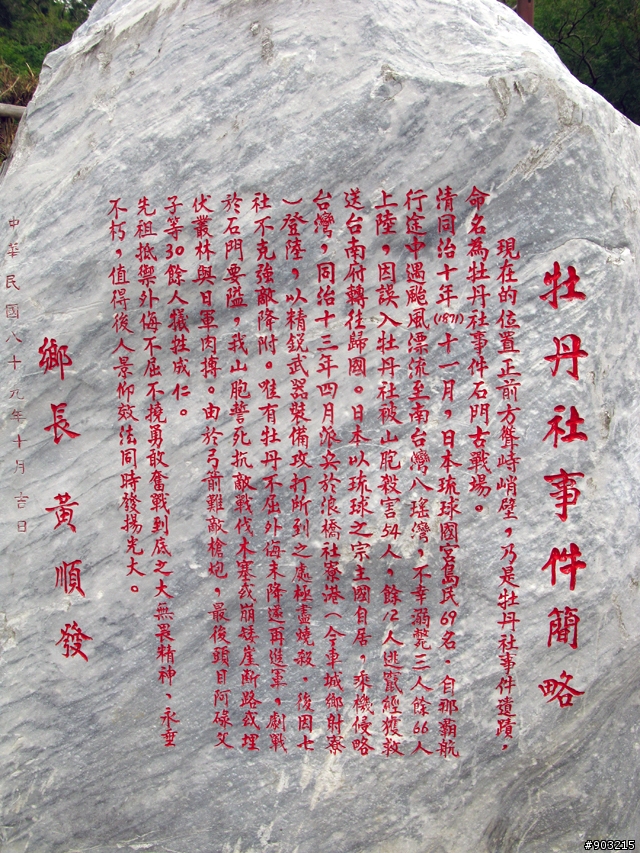 牡丹社事件簡略
現在的位置正前方聳峙峭壁，乃是牡丹社事件遺蹟，
命名為牡丹社事件石門古戰場。
清同治十年(1871)十一月，日本琉球國宮島民69名．自那霸航
行途中遇颱風漂流至南台灣八瑤灣，不幸溺斃三人餘66人
上陸，因誤入牡丹社被山胞殺害54人，餘12人逃竄經獲救
送台南府轉往歸國。日本以琉球之宗主國自居，乘機侵略
台灣，同治十三年四月派兵於浪橋社寮港(今車城鄉射寮
)登陸，以精銳武器裝備攻打所到之處極盡燒殺，後因七
社不克強敵降附。唯有牡丹不屈外侮未降遂再進軍，劇戰
於石門要隘，我山胞誓死抗敵戰伐木塞或崩矮崖斷路或埋
伏叢林與日軍肉搏。由於弓箭難敵槍炮，最後頭目阿碌父
子等30餘人犧牲成仁。
先祖抵禦外侮不屈不撓勇敢奮戰到底之大無畏精神、永垂
不朽，值得後人景仰效法同時發揚光大。
鄉長 黃順發
中華民國八十九年十月吉日
#903215